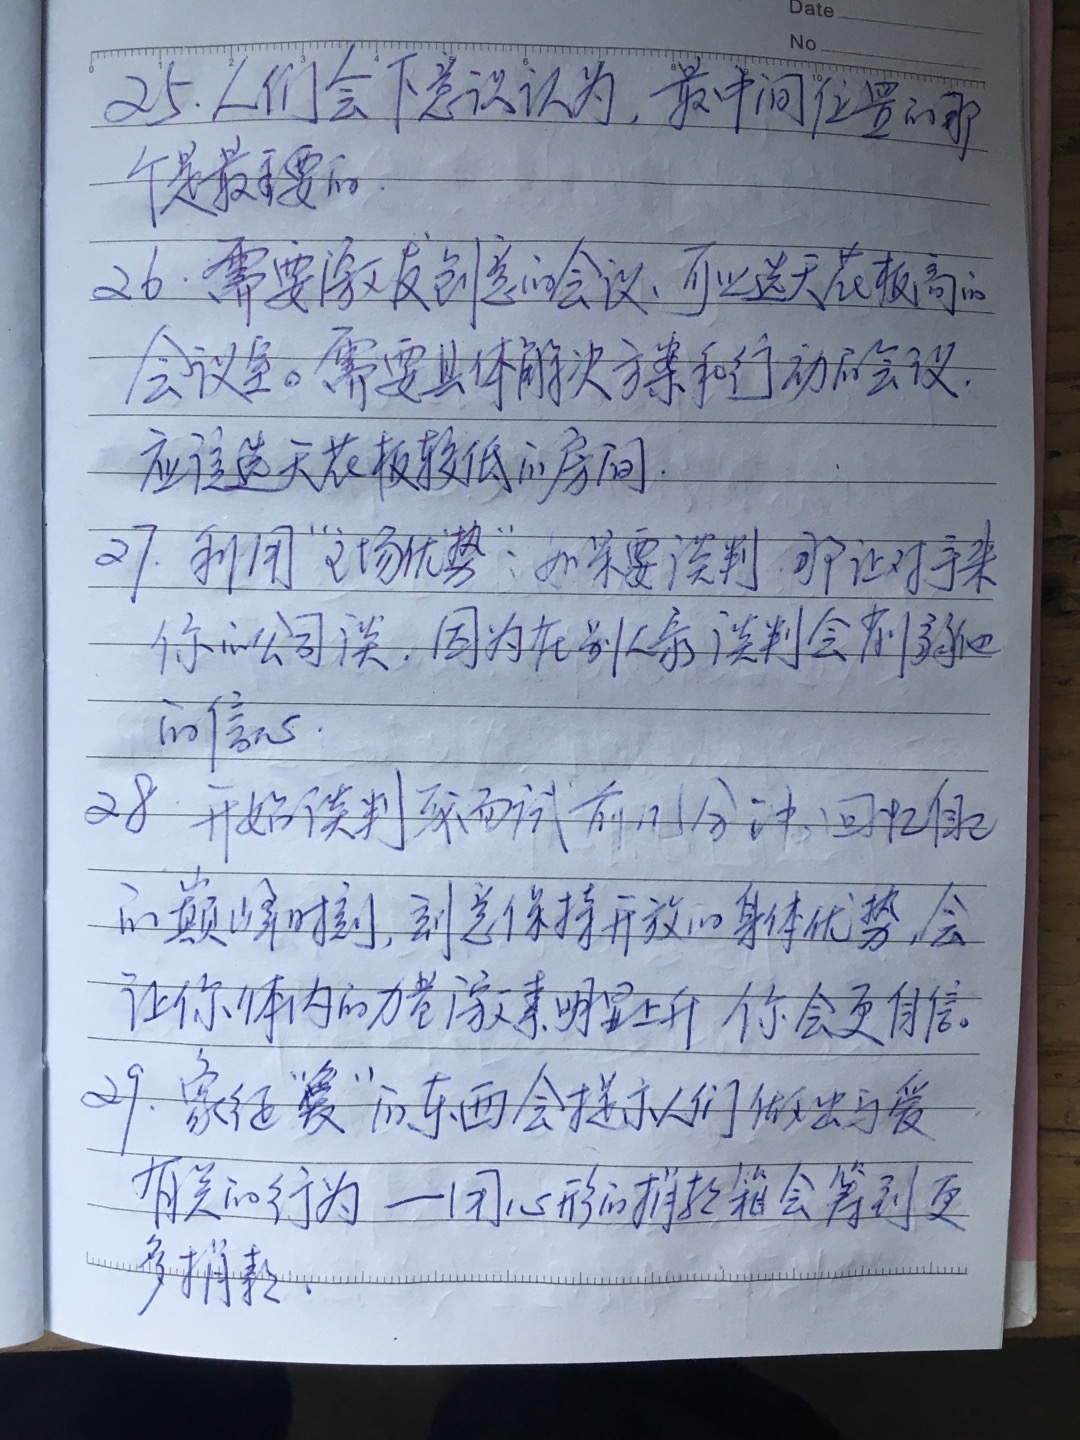 Date
No
25. 人们会下意识认为, 最中间位置的那
个是最重要的.
26. 需要激发创意的会议、可以选天花板高的
会议室。需要具体解决方案和行动的会议.
应该选天花板较低的房间.
27. 利用“主场优势”: 如果要谈判 那让对手来
你的公司谈. 因为在别人家谈判会削弱他
的信心.
28. 开始谈判或面试前几分钟、回忆自己
的巅峰时刻, 刻意保持开放的身体优势, 会
让你体内的力量激素明显上升 你会更自信。
29. 象征“爱”的东西会提示人们做出与爱
有关的行为 一 用心形的捐款箱会筹到更
多捐款.